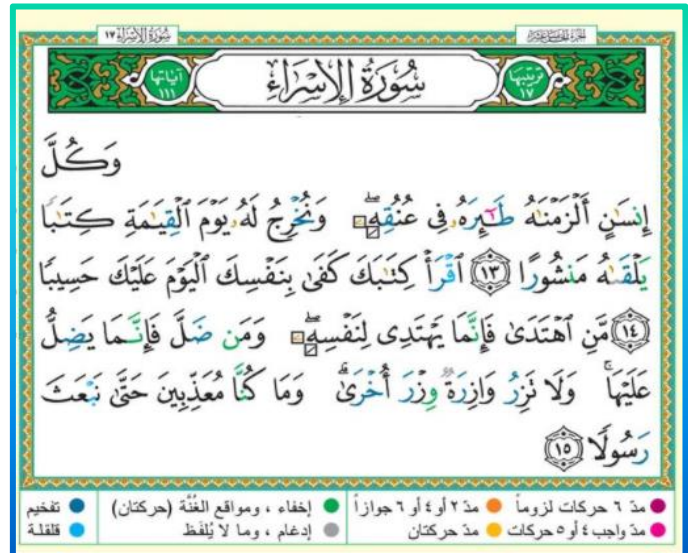 سُورَةُ الإِسْرَاءِ ١٧
الجزء الخامس عشر
ترتيبها ١٧
سُورَةُ الإِسْرَاءِ
آياتها ١١١
وَكُلَّ
إِنسَٰنٍ أَلْزَمْنَٰهُ طَٰٓئِرَهُۥ فِى عُنُقِهِۦۖ وَنُخْرِجُ لَهُۥ يَوْمَ ٱلْقِيَٰمَةِ كِتَٰبًا
يَلْقَىٰهُ مَنشُورًا ﴿١٣﴾ ٱقْرَأْ كِتَٰبَكَ كَفَىٰ بِنَفْسِكَ ٱلْيَوْمَ عَلَيْكَ حَسِيبًا
﴿١٤﴾ مَّنِ ٱهْتَدَىٰ فَإِنَّمَا يَهْتَدِى لِنَفْسِهِۦۖ وَمَن ضَلَّ فَإِنَّمَا يَضِلُّ
عَلَيْهَاۚ وَلَا تَزِرُ وَازِرَةٌ وِزْرَ أُخْرَىٰۗ وَمَا كُنَّا مُعَذِّبِينَ حَتَّىٰ نَبْعَثَ
رَسُولًا ﴿١٥﴾
مدّ ٦ حركات لزوماً مدّ ٢ أو ٤ أو ٦ جوازاً إخفاء ، ومواقع الغُنَّة (حركتان) تفخيم
مدّ واجب ٤ أو ٥ حركات مدّ حركتان إدغام ، وما لا يُلفَظ قلقلة